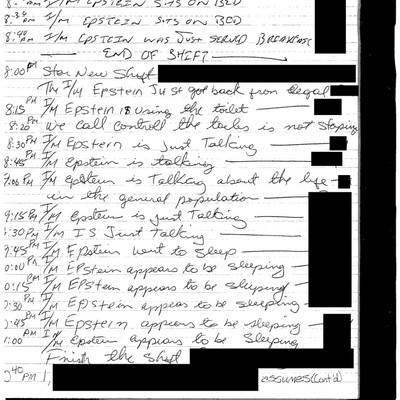 AM I/M EPSTEIN SITS ON BED
8:30 AM I/M EPSTEIN SITS ON BED
8:40 AM I/M EPSTEIN WAS JUST SERVED BREAKFAST
END OF SHIFT
8:00 PM Star New Shift
The I/M Epstein Just got back from legal
8:15 PM I/M Epstein is using the toilet
8:20 PM We call controll the toilet is not stoping
8:30 PM I/M Epstein is Just Talking
8:45 PM I/M Epstein is talking
9:00 PM I/M Epstein is Talking about the life
in the general population
9:15 PM I/M Epstein is just Talking
9:30 PM I/M IS Just talking
9:45 PM I/M Epstein went to sleep
0:00 PM I/M EPStein appears to be sleeping
0:15 PM I/M EPStein appears to be sleeping
0:30 PM I/M EPStein appears to be sleeping
0:45 PM I/M Epstein appears to be sleeping
1:00 PM I/M Epstein appears to be Sleeping
Finish the Shift
:40 PM I, ASSUMES (Cont'd)